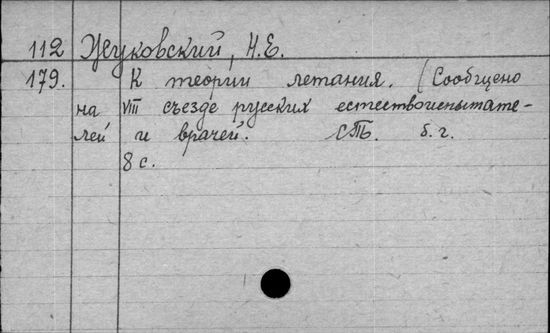 112 Жуковский, Н.Е.
179. К теории летания. (Сообщено
на VIII съезде русских естествоиспытате-
лей и врачей. СПб. б.г.
8 с.